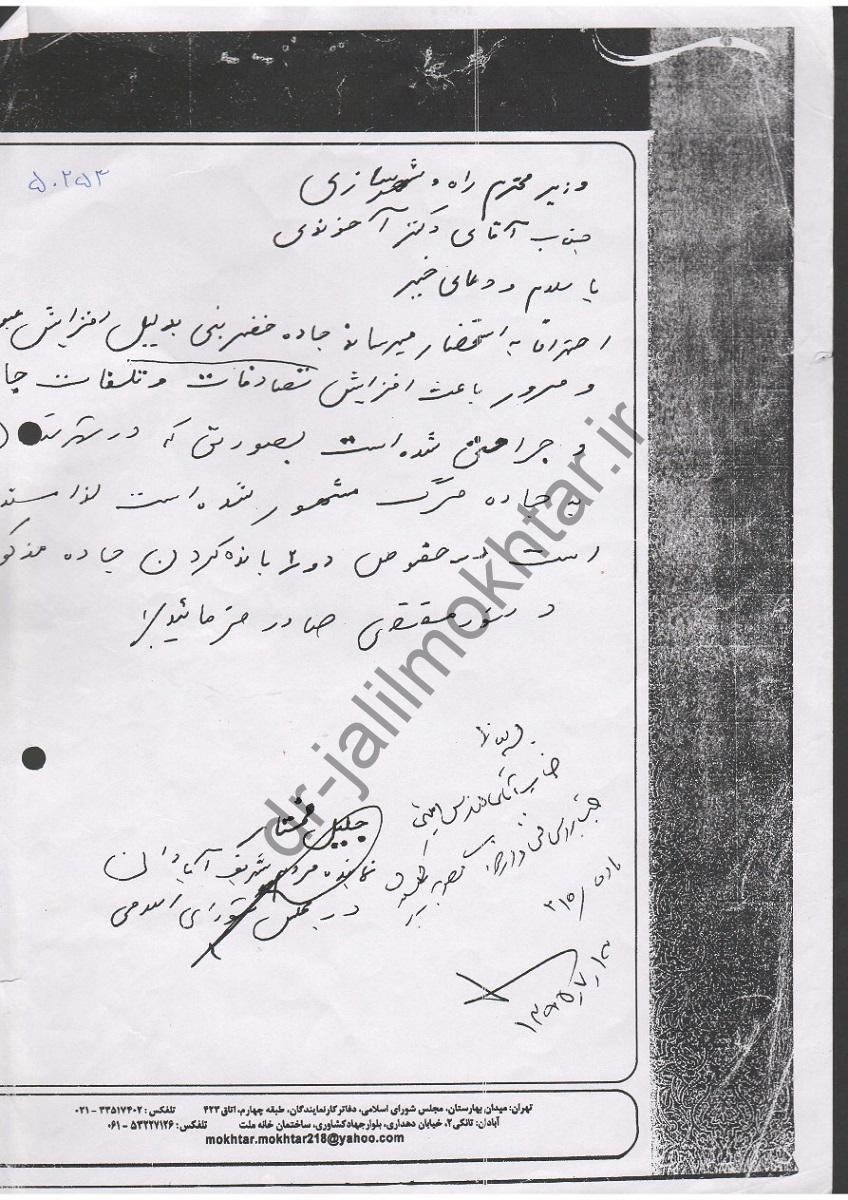 ۵۰۲۵۳
وزیر محترم راه و شهرسازی
جناب آقای دکتر آخوندی
با سلام و دعای خیر
احتراماً به استحضار میرساند جاده خضرنبی بدلیل افزایش عبو
و مرور باعث افزایش تصادفات و تلفات جا
و جراحتی شده است بصورتی که در شهرستا
به جاده مرگ مشهور شده است لذا مستد
است در خصوص دو بانده کردن جاده مذکو
دستور مقتضی صادر فرمائید
جلیل مختار
نماینده مردم شریف آبادان
در مجلس شورای اسلامی
جناب آقای مهندس امینی
ماده ۲۱۵
۱۳۹۵/۷/۱۳
تهران: میدان بهارستان، مجلس شورای اسلامی، دفاتر کار نمایندگان، طبقه چهارم، اتاق ۴۲۳ تلفکس: ۳۳۵۱۷۴۰۲ - ۰۲۱
آبادان: تانکی۲، خیابان دهداری، بلوار جهاد کشاوری، ساختمان خانه ملت تلفکس: ۵۳۲۲۷۱۲۶ - ۰۶۱
mokhtar.mokhtar218@yahoo.com
dr-jalilmokhtar.ir